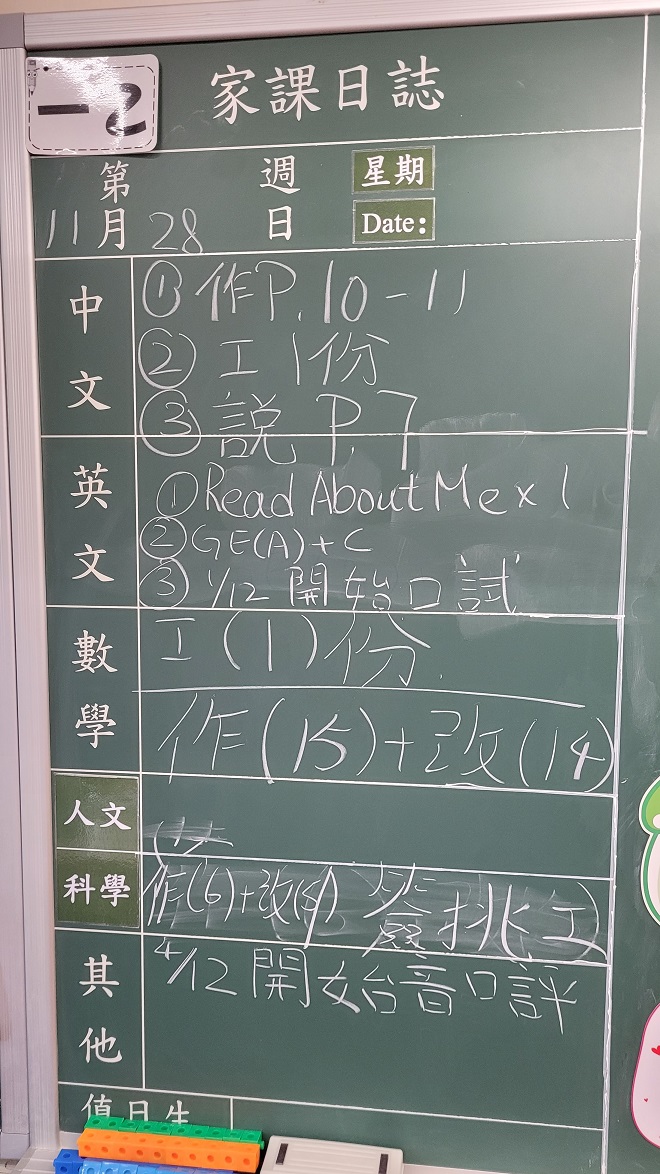 一2
家課日誌
第 週 星期
11月28日 Date:
中文
①作P.10-11
②工1份
③説P.7
英文
①Read About Me x 1
②GE(A)+C
③1/12開始口試
數學
工(1)份.
作(15)+改(14)
人文
科學
作(6)+改(5) 簽挑工
其他
4/12開始音口評
值日生